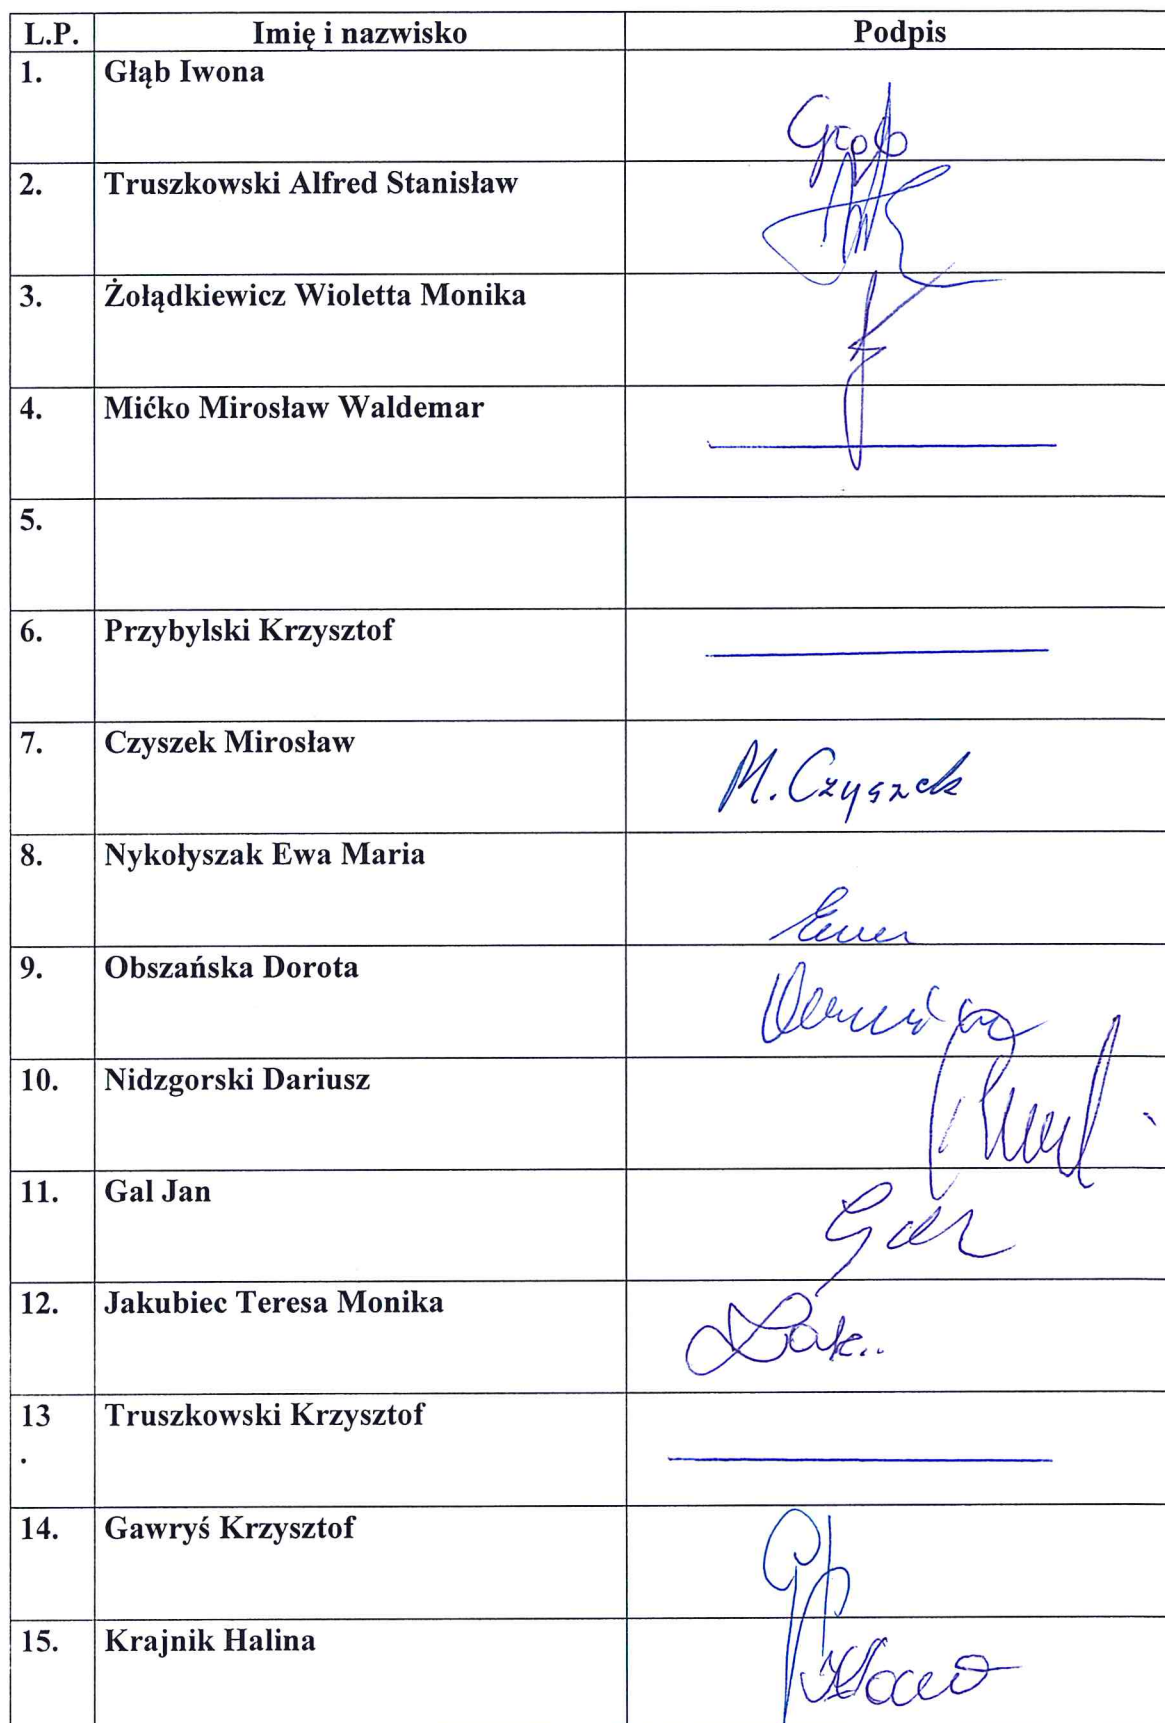 L.P. Imię i nazwisko Podpis
1. Głąb Iwona
2. Truszkowski Alfred Stanisław
3. Żołądkiewicz Wioletta Monika
4. Mićko Mirosław Waldemar
5.
6. Przybylski Krzysztof
7. Czyszek Mirosław M. Czyszek
8. Nykołyszak Ewa Maria
9. Obszańska Dorota
10. Nidzgorski Dariusz
11. Gal Jan Gal
12. Jakubiec Teresa Monika
13
.
Truszkowski Krzysztof
14. Gawryś Krzysztof
15. Krajnik Halina